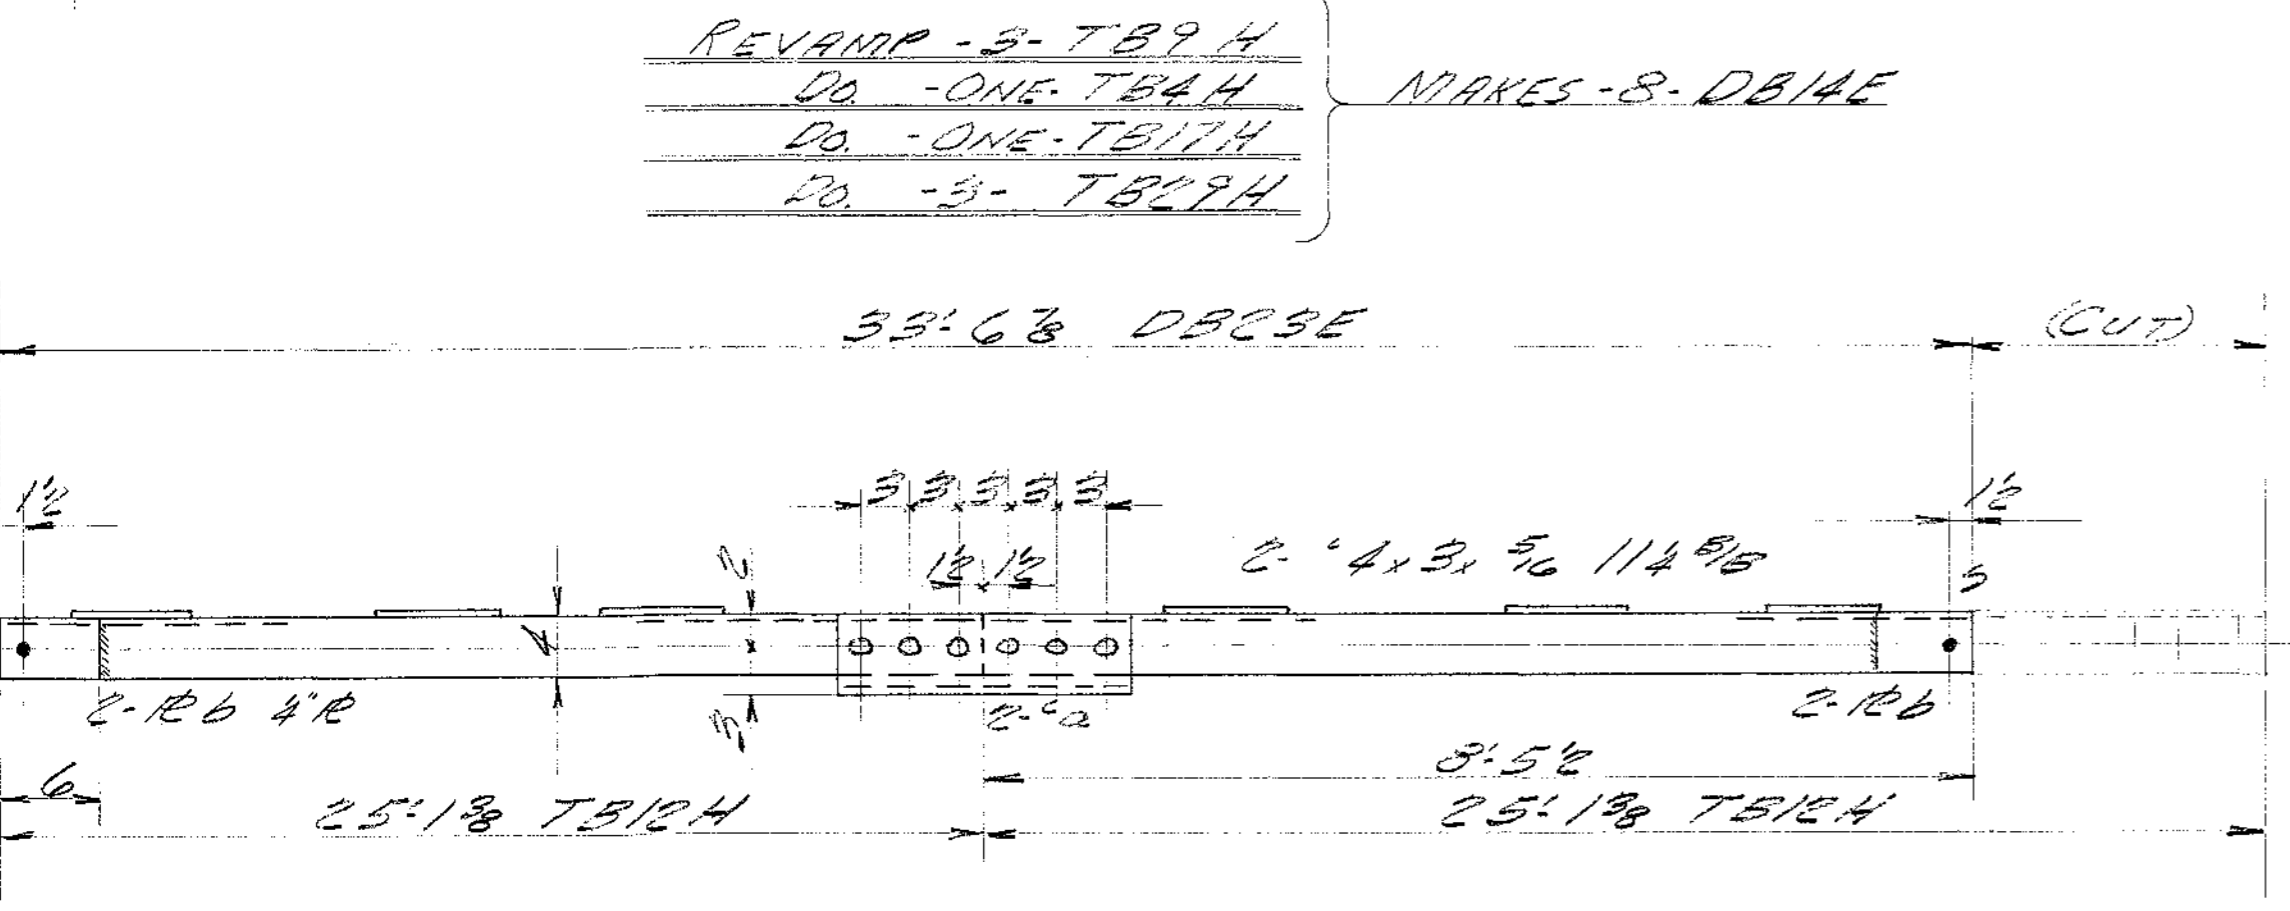 REVAMP -3- TB9H
DO. -ONE- TB4H
DO. -ONE- TB17H
DO. -3- TB29H
MAKES -8- DB14E
33'-6 7/8 DB23E
(CUT)
1 1/2
3 3 3 3 3
1 1/2
1 1/2 1 1/2
2
2-∠ 4 x 3 x 5/16 11 1/4 B/B
4
2-℞b 4"℞
3
2-∠a
2-℞b
8'-5 1/2
6
25'-1 3/8 TB12H
25'-1 3/8 TB12H